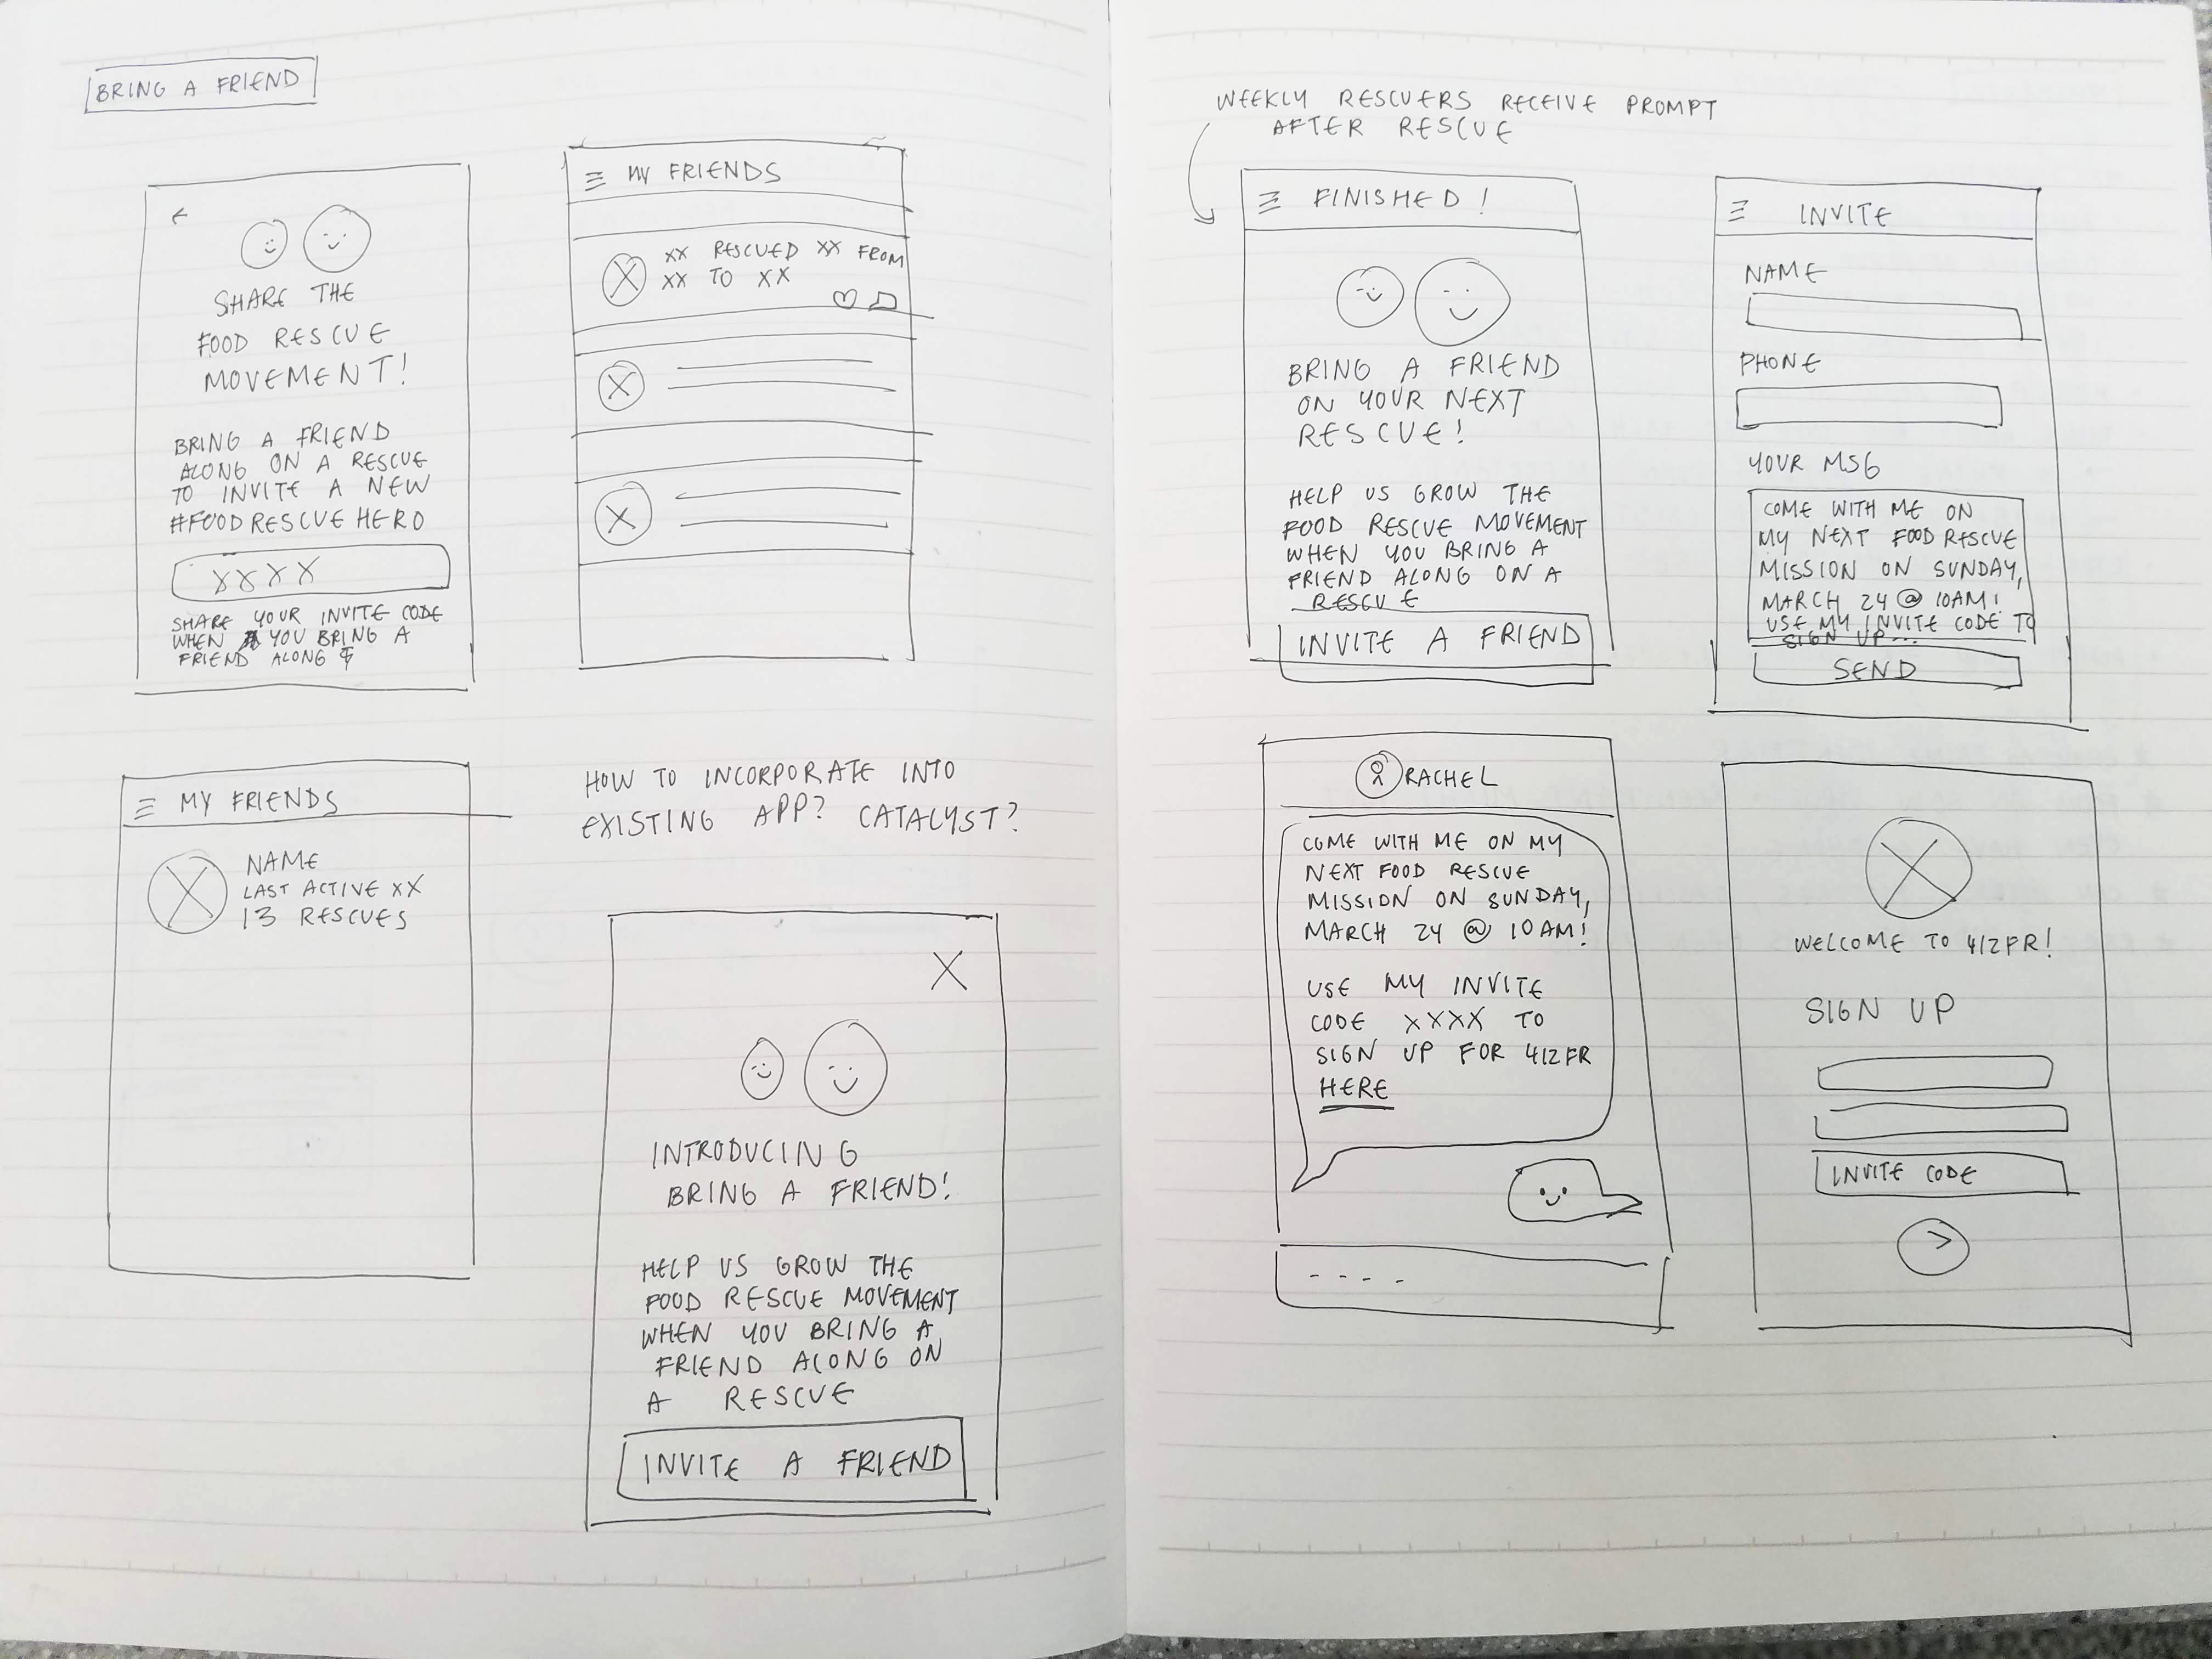 BRING A FRIEND
SHARE THE
FOOD RESCUE
MOVEMENT!
BRING A FRIEND
ALONG ON A RESCUE
TO INVITE A NEW
#FOODRESCUEHERO
XXXX
SHARE YOUR INVITE CODE
WHEN YOU BRING A
FRIEND ALONG
MY FRIENDS
XX RESCUED XX FROM
XX TO XX
MY FRIENDS
NAME
LAST ACTIVE XX
13 RESCUES
HOW TO INCORPORATE INTO
EXISTING APP? CATALYST?
X
INTRODUCING
BRING A FRIEND!
HELP US GROW THE
FOOD RESCUE MOVEMENT
WHEN YOU BRING A
FRIEND ALONG ON
A RESCUE
INVITE A FRIEND
WEEKLY RESCUERS RECEIVE PROMPT
AFTER RESCUE
FINISHED!
BRING A FRIEND
ON YOUR NEXT
RESCUE!
HELP US GROW THE
FOOD RESCUE MOVEMENT
WHEN YOU BRING A
FRIEND ALONG ON A
RESCUE
INVITE A FRIEND
INVITE
NAME
PHONE
YOUR MSG
COME WITH ME ON
MY NEXT FOOD RESCUE
MISSION ON SUNDAY,
MARCH 24 @ 10AM!
USE MY INVITE CODE TO
SIGN UP...
SEND
RACHEL
COME WITH ME ON MY
NEXT FOOD RESCUE
MISSION ON SUNDAY,
MARCH 24 @ 10AM!
USE MY INVITE
CODE XXXX TO
SIGN UP FOR 412FR
HERE
WELCOME TO 412FR!
SIGN UP
INVITE CODE